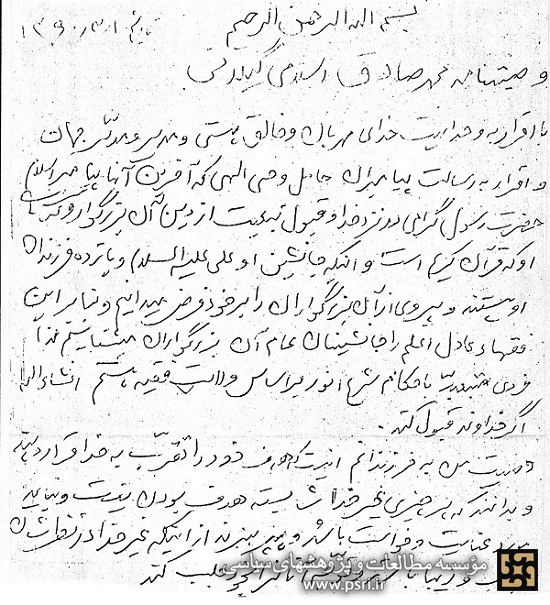 بسم الله الرحمن الرحیم
وصیتنامه محمد صادق اسلامی گیلانی
با اقرار به وحدانیت خدای مهربان و خالق هستی و مدبر جهان
و اقرار به رسالت پیامبران حامل وحی الهی که آخرین آنها پیامبر اسلام
حضرت رسول گرامی نزد خدا و قبول تبعیت از دین آن بزرگوار و
او که قرآن کریم است و اینکه جانشین او علی علیه السلام و یازده فرزندان
او هستند و پیروی از آن بزرگواران را بر خود فرض میدانیم و بنابراین
فقهاء عادل اعلم را جانشینان عام آن بزرگواران لذا
فردی باحکام شرع انور بر اساس ولایت فقیه هستم انشاءالله
اگر خداوند قبول کند.
وصیت من به فرزندانم اینست که هدف خود را تقرب به خدا قرار دهند
و بدانند که هر چیزی غیر خدا شایسته هدف بودن نیست و نباید
مورد عنایت و خواست باشد و بپرهیزند از اینکه غیر خدا در نظرشان
جلب کند
مؤسسه مطالعات و پژوهشهای سیاسی
www.psri.ir